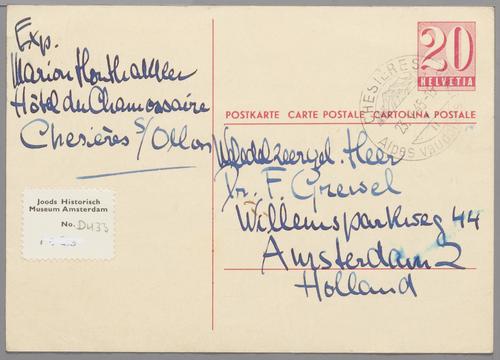 Exp.
Marion Honthaller
Hôtel du Chamossaire
Chesières s/Ollon
20
HELVETIA
CHESIERES
ALPES VAUD
POSTKARTE CARTE POSTALE CARTOLINA POSTALE
Weledelzeergel. Heer
Dr. F. Grewel
Willemsparkweg 44
Amsterdam Z
Holland
Joods Historisch
Museum Amsterdam
No. D433